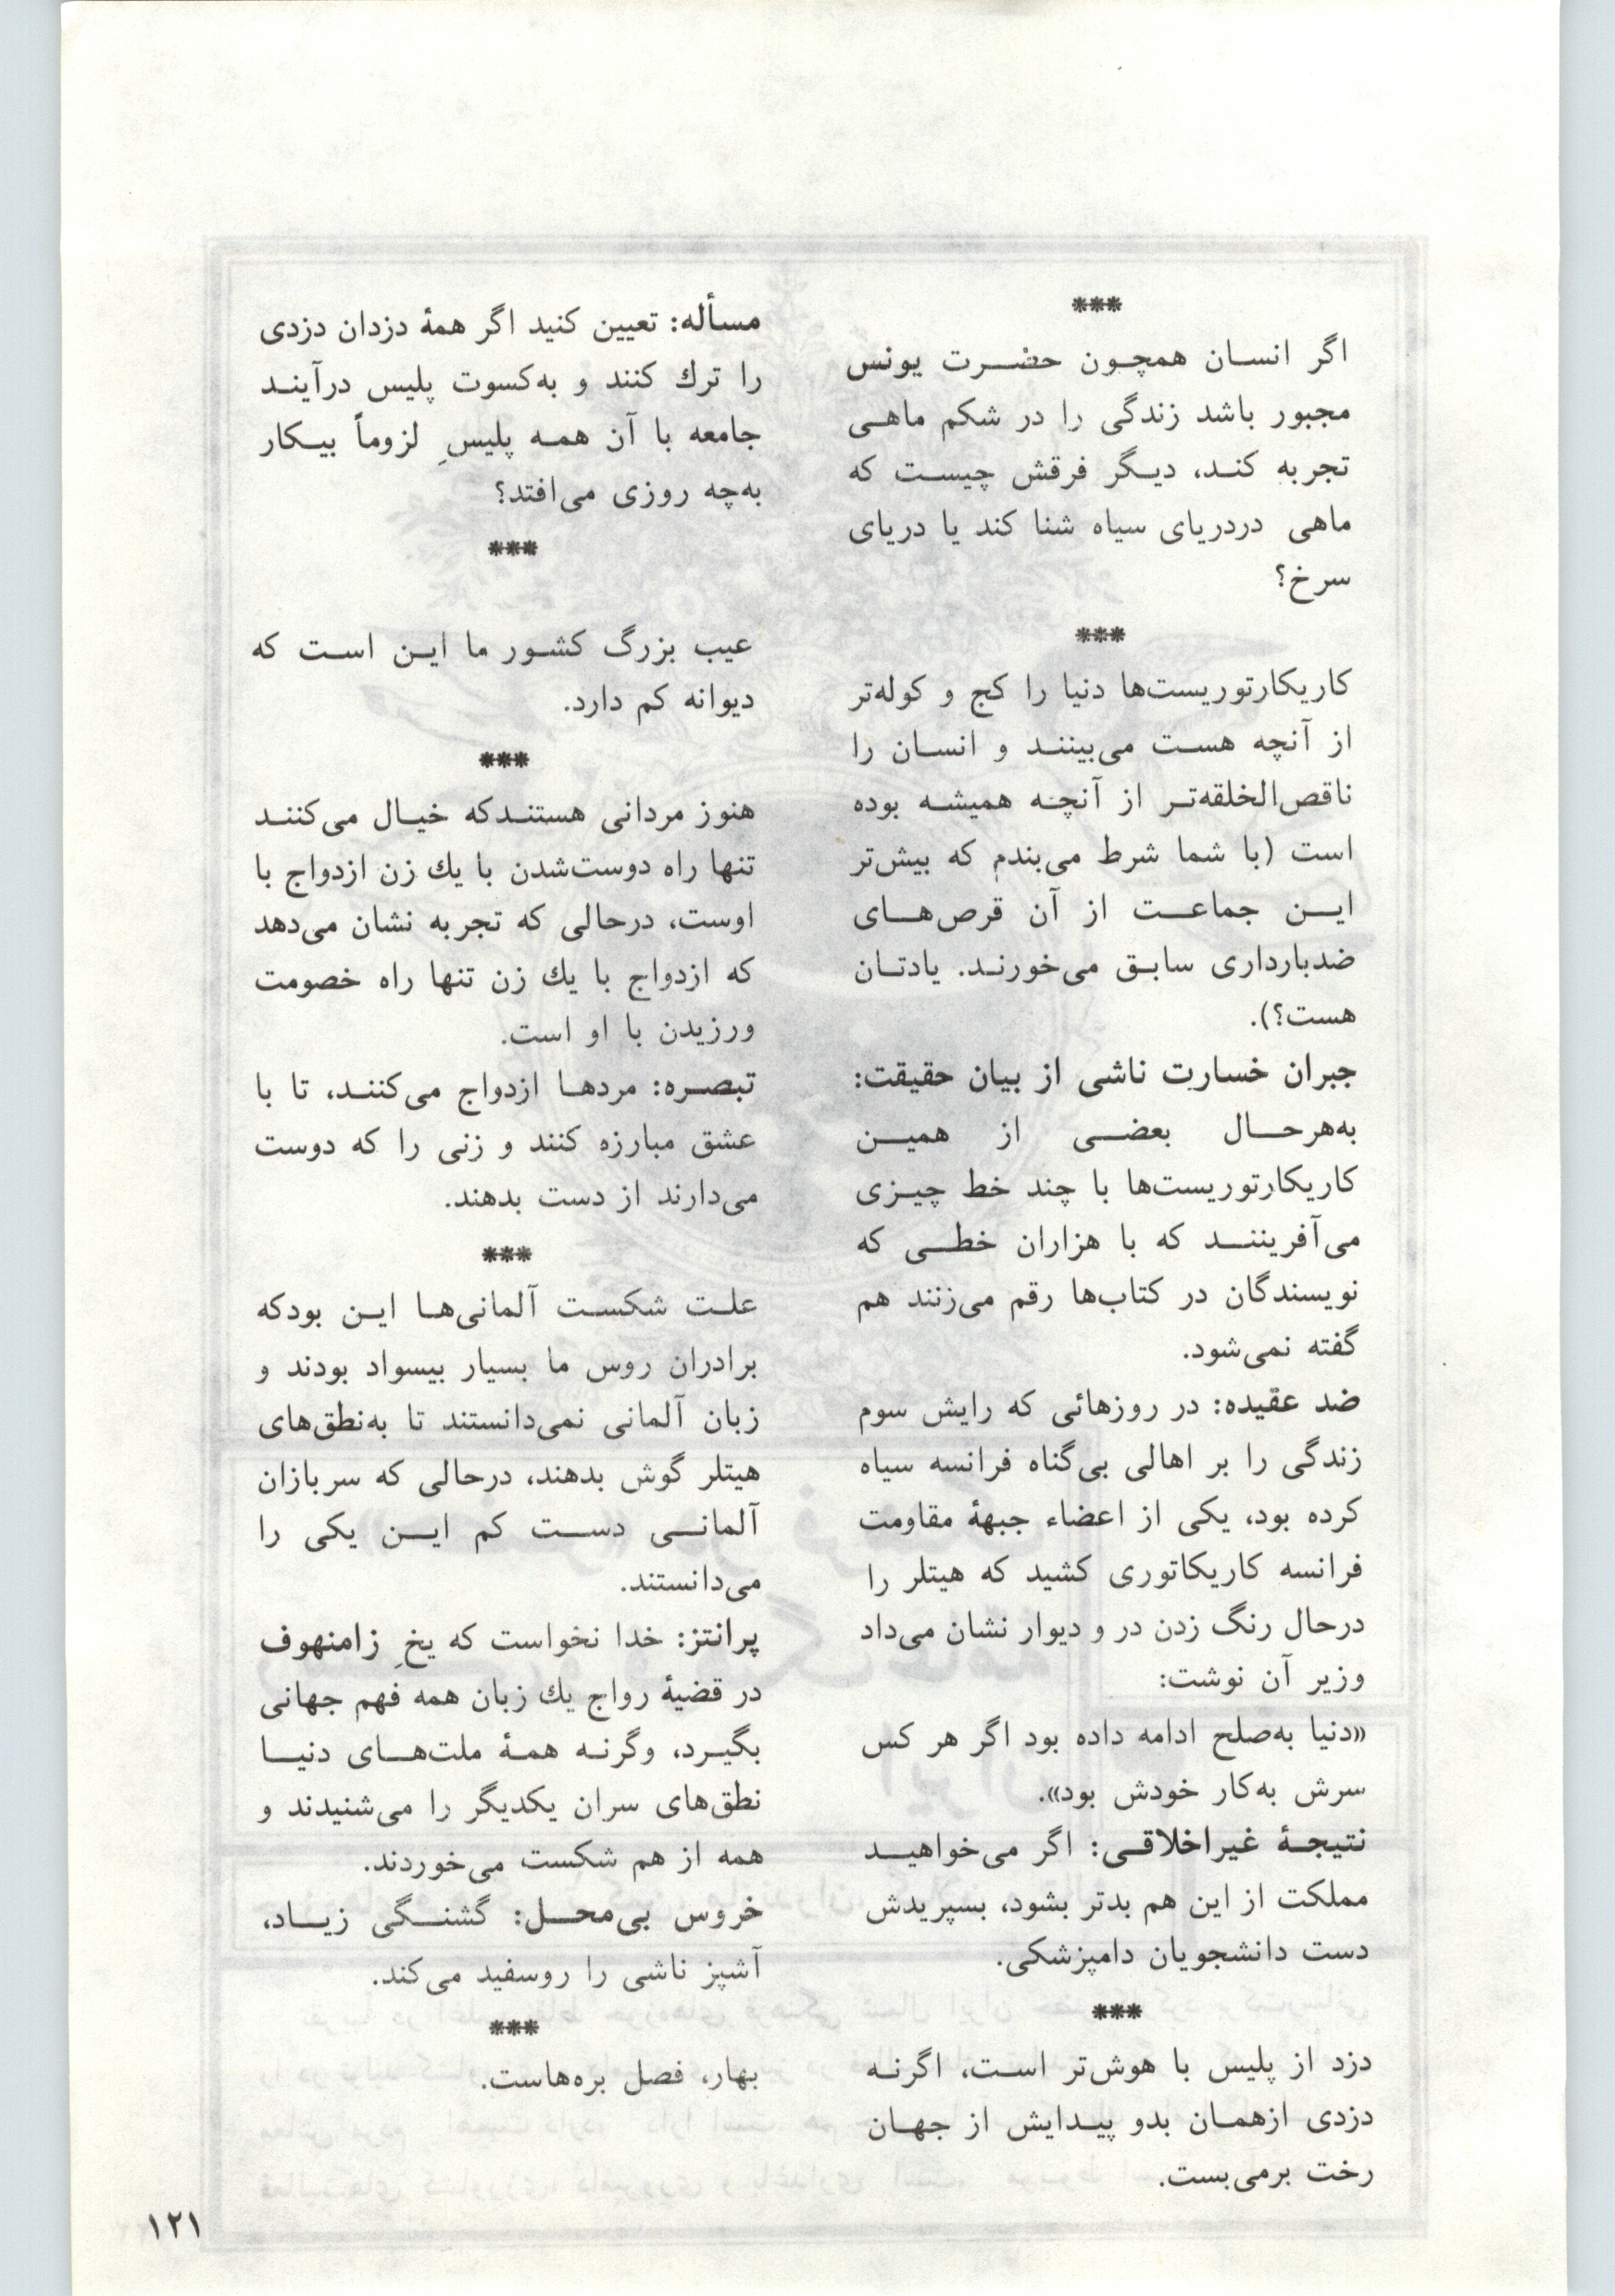 ***
اگر انسان همچون حضرت یونس
مجبور باشد زندگی را در شکم ماهی
تجربه کند، دیگر فرقش چیست که
ماهی دردریای سیاه شنا کند یا دریای
سرخ؟
***
کاریکارتوریست‌ها دنیا را کج و کوله‌تر
از آنچه هست می‌بینند و انسان را
ناقص‌الخلقه‌تر از آنچه همیشه بوده
است (با شما شرط می‌بندم که بیش‌تر
این جماعت از آن قرص‌های
ضدبارداری سابق می‌خورند. یادتان
هست؟).
جبران خسارت ناشی از بیان حقیقت:
به‌هرحال بعضی از همین
کاریکارتوریست‌ها با چند خط چیزی
می‌آفرینند که با هزاران خطی که
نویسندگان در کتاب‌ها رقم می‌زنند هم
گفته نمی‌شود.
ضد عقیده: در روزهائی که رایش سوم
زندگی را بر اهالی بی‌گناه فرانسه سیاه
کرده بود، یکی از اعضاء جبههٔ مقاومت
فرانسه کاریکاتوری کشید که هیتلر را
درحال رنگ زدن در و دیوار نشان می‌داد
وزیر آن نوشت:
«دنیا به‌صلح ادامه داده بود اگر هر کس
سرش به‌کار خودش بود».
نتیجهٔ غیراخلاقی: اگر می‌خواهید
مملکت از این هم بدتر بشود، بسپریدش
دست دانشجویان دامپزشکی.
***
دزد از پلیس با هوش‌تر است، اگرنه
دزدی ازهمان بدو پیدایش از جهان
رخت برمی‌بست.
مسأله: تعیین کنید اگر همهٔ دزدان دزدی
را ترك کنند و به‌کسوت پلیس درآیند
جامعه با آن همه پلیسِ لزوماً بیکار
به‌چه روزی می‌افتد؟
***
عیب بزرگ کشور ما این است که
دیوانه کم دارد.
***
هنوز مردانی هستندکه خیال می‌کنند
تنها راه دوست‌شدن با یك زن ازدواج با
اوست، درحالی که تجربه نشان می‌دهد
که ازدواج با یك زن تنها راه خصومت
ورزیدن با او است.
تبصره: مردها ازدواج می‌کنند، تا با
عشق مبارزه کنند و زنی را که دوست
می‌دارند از دست بدهند.
***
علت شکست آلمانی‌ها این بودکه
برادران روس ما بسیار بیسواد بودند و
زبان آلمانی نمی‌دانستند تا به‌نطق‌های
هیتلر گوش بدهند، درحالی که سربازان
آلمانی دست کم این یکی را
می‌دانستند.
پرانتز: خدا نخواست که یخِ زامنهوف
در قضیهٔ رواج یك زبان همه فهم جهانی
بگیرد، وگرنه همهٔ ملت‌های دنیا
نطق‌های سران یکدیگر را می‌شنیدند و
همه از هم شکست می‌خوردند.
خروس بی‌محل: گشنگی زیاد،
آشپز ناشی را روسفید می‌کند.
***
بهار، فصل بره‌هاست.
۱۲۱